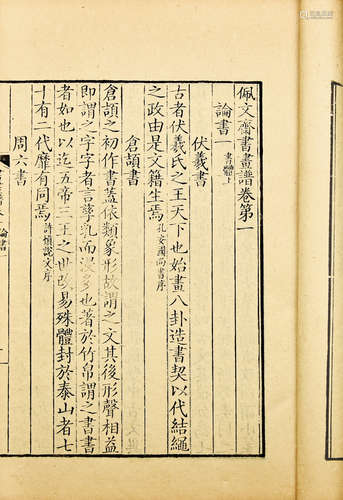 佩文齋書畫譜卷第一
論書一 書體上
伏羲書
古者伏羲氏之王天下也始畫八卦造書契以代結繩
之政由是文籍生焉 孔安國尚書序
倉頡書
倉頡之初作書蓋依類象形故謂之文其後形聲相益
即謂之字字者言孳乳而浸多也著於竹帛謂之書書
者如也以迄五帝三王之世改易殊體封於泰山者七
十有二代靡有同焉 許慎說文序
周六書
論書